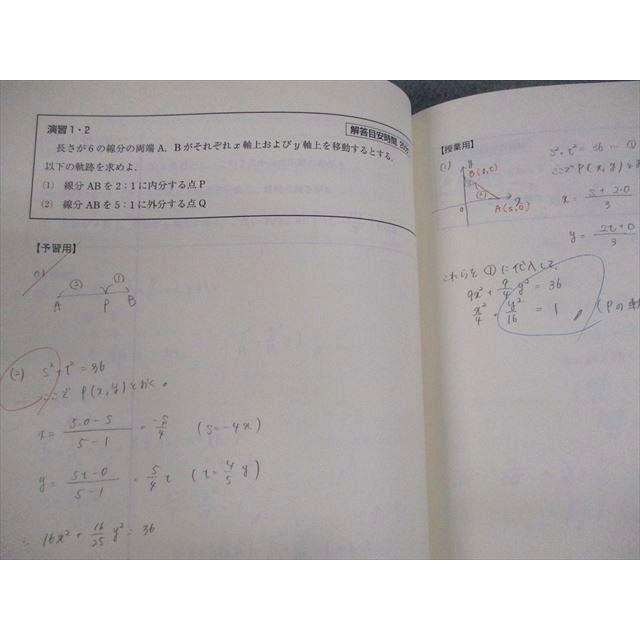 演習1・2
解答目安時間
長さが6の線分の両端A, Bがそれぞれx軸上およびy軸上を移動するとする.
以下の軌跡を求めよ.
(1) 線分ABを2:1に内分する点P
(2) 線分ABを5:1に外分する点Q
【予習用】
(1)
② ①
A P B
(2) s²+t²=36
ここで P(x,y)とおく。
x= 5・0-s / 5-1 = -s/4 (s=-4x)
y= 5t-0 / 5-1 = 5/4 t (t=4/5 y)
∴ 16x²+16/25 y²=36
【授業用】
(1)
s²+t²=36 … ①
ここで P(x,y)と
y
B(0,t)
x
0
A(s,0)
x= s+2・0 / 3
y= 2t+0 / 3
これらを①に代入して
9x²+9/4 y²=36
x²/4+y²/16=1
(Pの